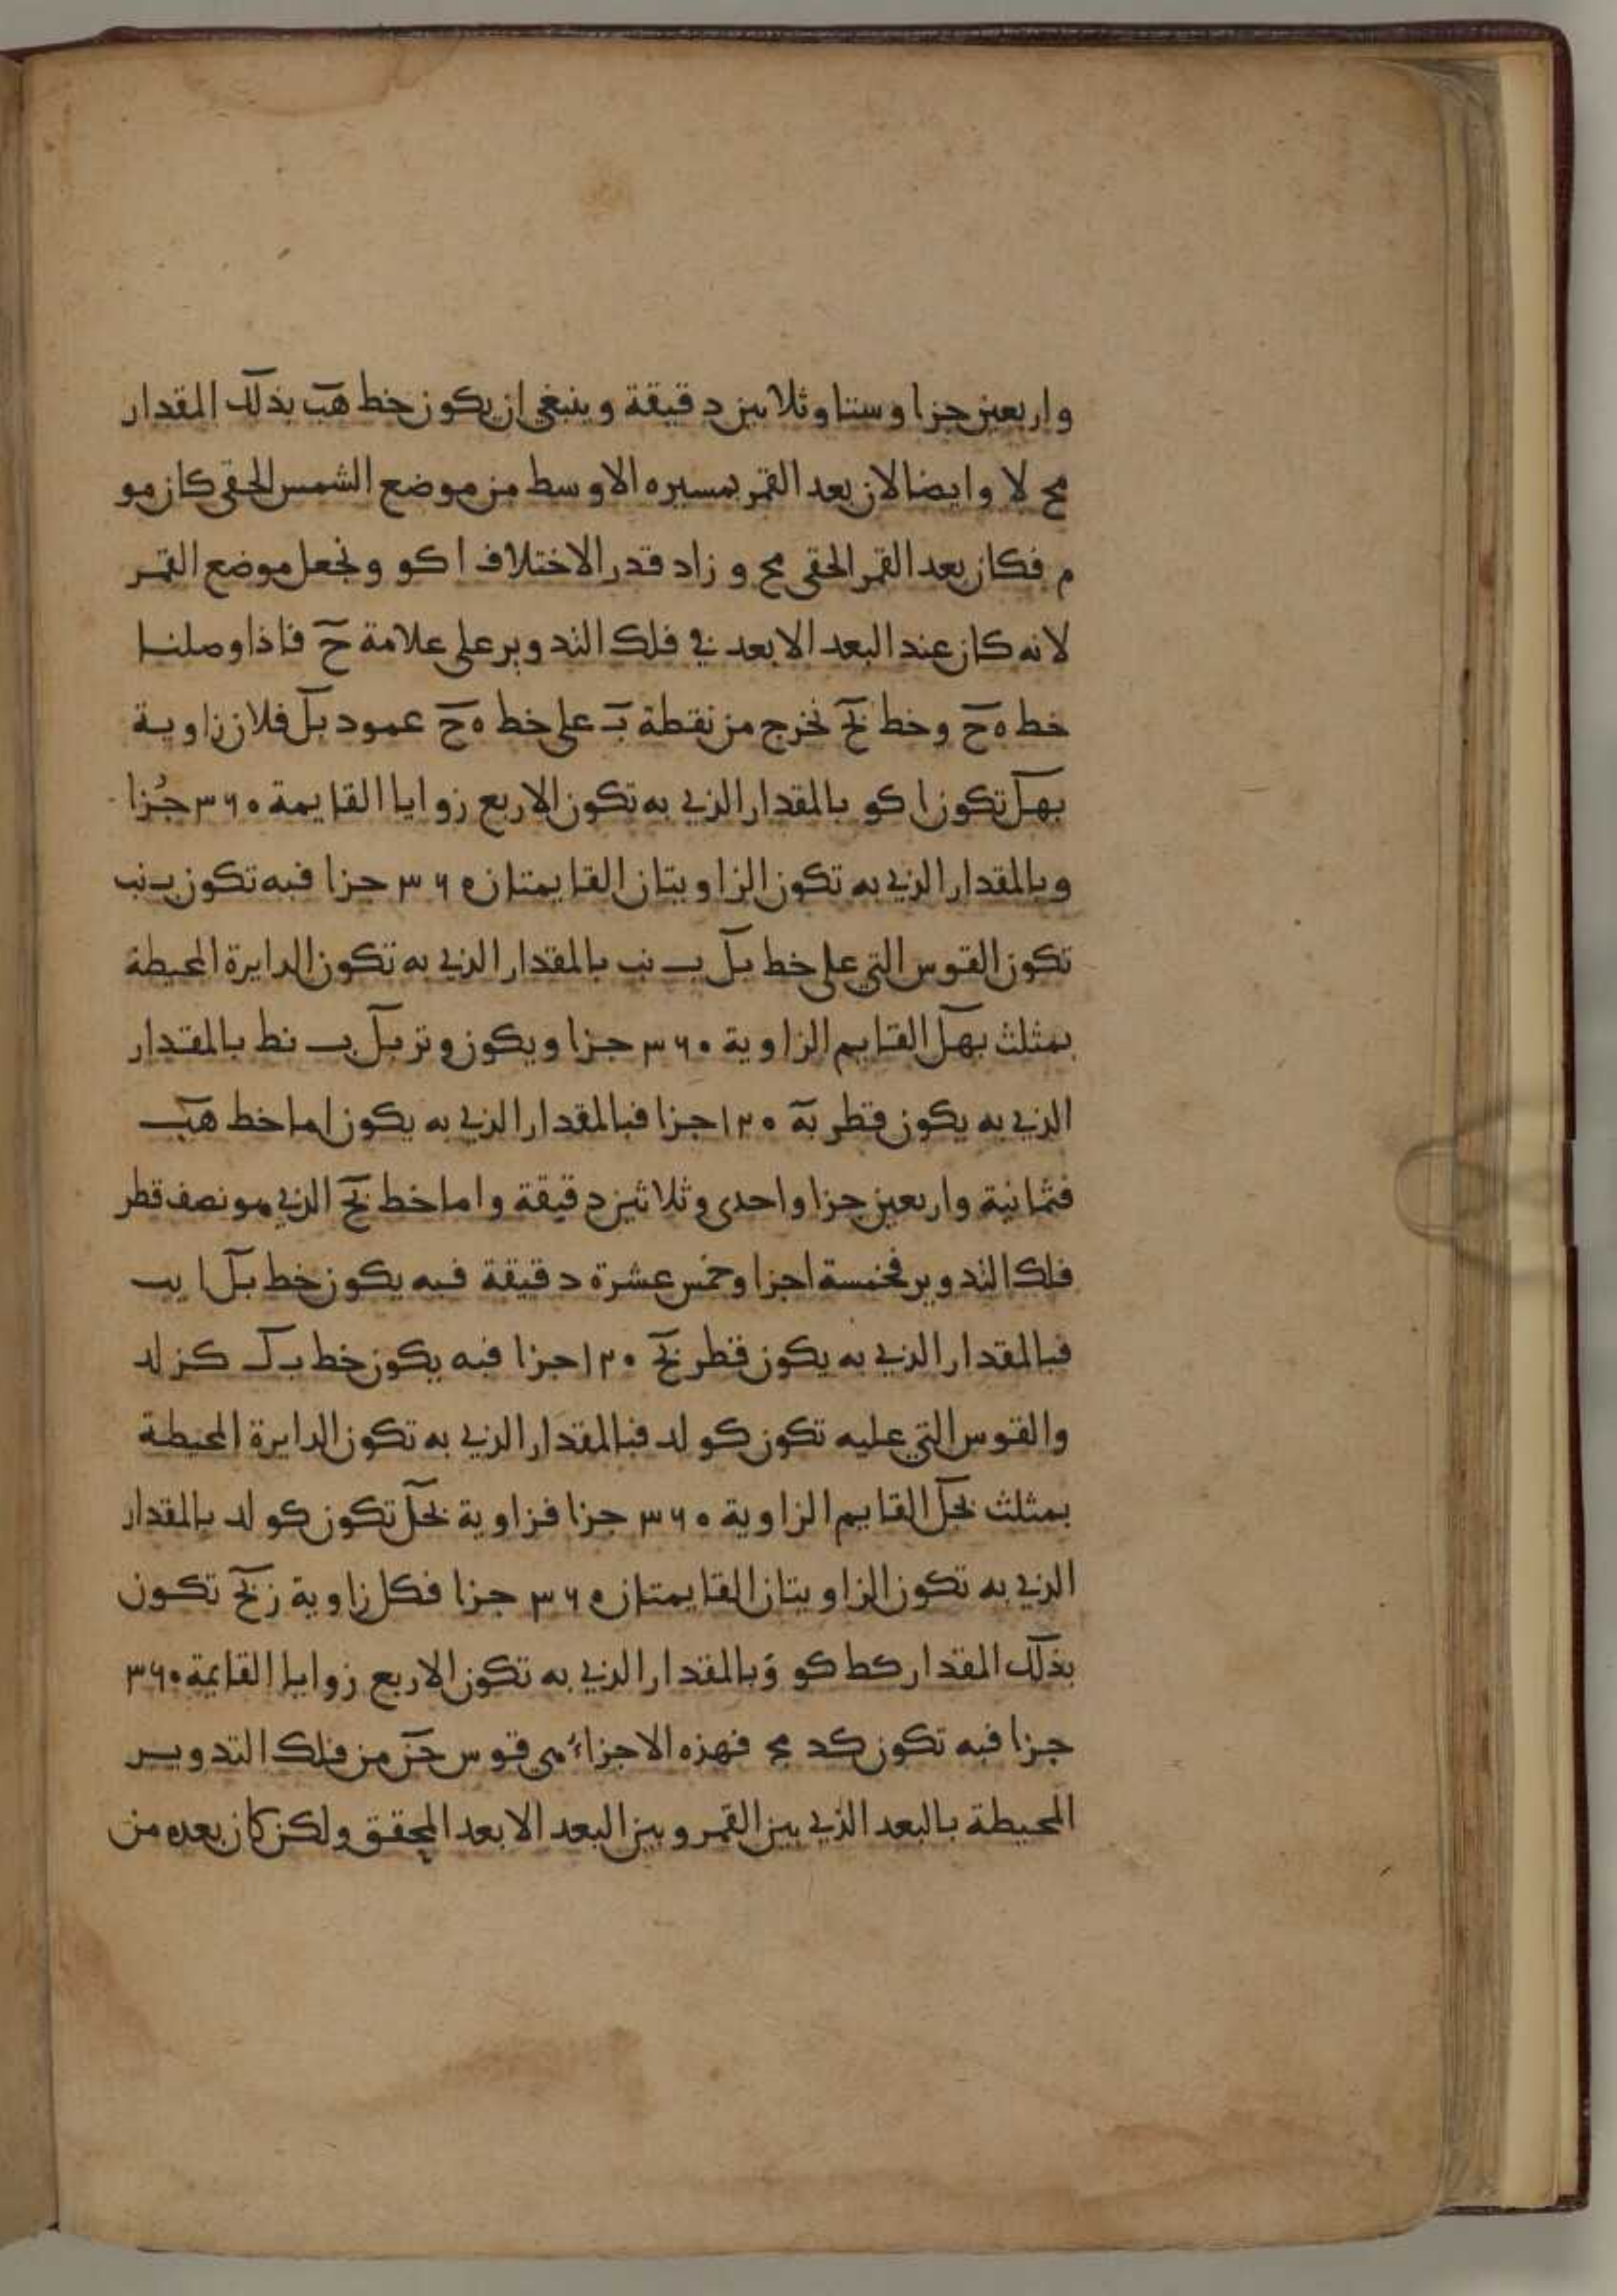 واربعين جزا وستا وثلاثين دقيقة وينبغي ان يكون خط هب بذلك المقدار
مح لا وايضا لان بعد القمر بمسيره الاوسط من موضع الشمس الحقي كان مو
م فكان بعد القمر الحقي مح و زاد قدر الاختلاف ا كو ونجعل موضع القمر
لانه كان عند البعد الابعد في فلك التدوير على علامة ح فاذا وصلنا
خط ه ح وخط بح نخرج من نقطة ب على خط ه ح عمود بل فلان زاوية
بهل تكون ا كو بالمقدار الذي به تكون الاربع زوايا القايمة ٣٦٠ جُزا
وبالمقدار الذي به تكون الزاويتان القايمتان ٣٦٠ جزا فبه تكون ب نب
تكون القوس التي على خط بل ب نب بالمقدار الذي به تكون الدايرة المحيطة
بمثلث بهل القايم الزاوية ٣٦٠ جزا ويكون وتر بل ب نط بالمقدار
الذي به يكون قطر به ١٢٠ جزا فبالمقدار الذي به يكون اما خط هب
فثمانية واربعين جزا واحدى وثلاثين دقيقة واما خط بح الذي هو نصف قطر
فلك التدوير فخمسة اجزا وخمس عشرة دقيقة فبه يكون خط بل ا يب
فبالمقدار الذي به يكون قطر بح ١٢٠ جزا فبه يكون خط بل كز لد
والقوس التي عليه تكون كو لد فبالمقدار الذي به تكون الدايرة المحيطة
بمثلث بحل القايم الزاوية ٣٦٠ جزا فزاوية بحل تكون كو لد بالمقدار
الذي به تكون الزاويتان القايمتان ٣٦٠ جزا فكل زاوية زبح تكون
بذلك المقدار كط كو وبالمقدار الذي به تكون الاربع زوايا القايمة ٣٦٠
جزا فبه تكون كد مح فهذه الاجزاء هي قوس حز من فلك التدوير
المحيطة بالبعد الذي بين القمر وبين البعد الابعد المحقق ولكن كان بعده من